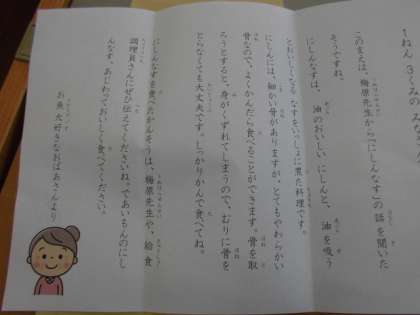 1ねん3くみのみ
このまえは、梅原先生から「にしんなす」の話を聞いた
そうですね。
にしんなすは、油のおいしいにしんと、油を吸う
とおいしくなるなすをいっしょに煮た料理です。
にしんには、細かい骨がありますが、とてもやわらかい
骨なので、よくかんだら食べることができます。骨を取
ろうとすると、身がくずれてしまうので、むりに骨を
とらなくても大丈夫です。しっかりかんで食べてね。
にしんなすを食べたかんそうは、梅原先生や、給食
調理員さんにぜひ伝えてくださいね。であいもんのにし
んなす、あじわっておいしく食べてください。
お魚大好きなおばあさんより